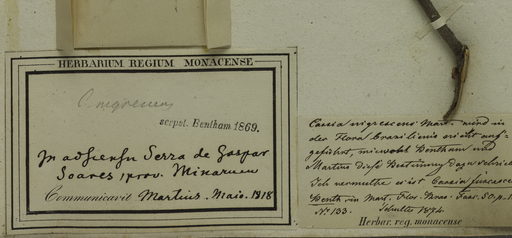 HERBARIUM REGIUM MONACENSE
C. nigrescens
scrpst. Bentham 1869.
Serra de Gaspar
Soares, prov. Minarum
Communicavit Martius. Maio. 1818
Cassia nigrescens Mart. wird in
der Flora Brasiliensis nicht auf-
geführt, Bentham und
Martius diese
Ich vermuthe es ist Cassia
Benth. in Mart. Flor. Bras. Fasc. 50. p.
No. 133. 1874.
Herbar. reg. monacense